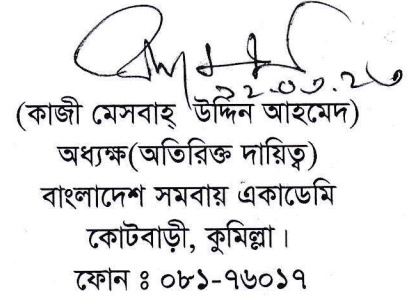 (কাজী মেসবাহ্ উদ্দিন আহমেদ)
অধ্যক্ষ(অতিরিক্ত দায়িত্ব)
বাংলাদেশ সমবায় একাডেমি
কোটবাড়ী, কুমিল্লা।
ফোন ঃ ০৮১-৭৬০১৭